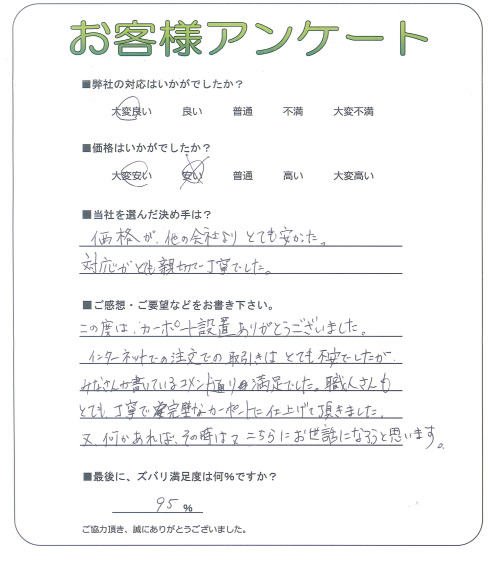 お客様アンケート
■弊社の対応はいかがでしたか?
大変良い 良い 普通 不満 大変不満
■価格はいかがでしたか?
大変安い 安い 普通 高い 大変高い
■当社を選んだ決め手は?
価格が、他の会社よりとても安かった。
対応がとても親切で丁寧でした。
■ご感想・ご要望などをお書き下さい。
この度は、カーポート設置ありがとうございました。
インターネットでの注文での取引きはとても不安でしたが、
みなさんが書いているコメント通り満足でした。職人さんも
とても、丁寧で完璧なカーポートに仕上げて頂きました。
又、何かあれば、その時はこちらにお世話になろうと思います。
■最後に、ズバリ満足度は何%ですか?
95 %
ご協力頂き、誠にありがとうございました。